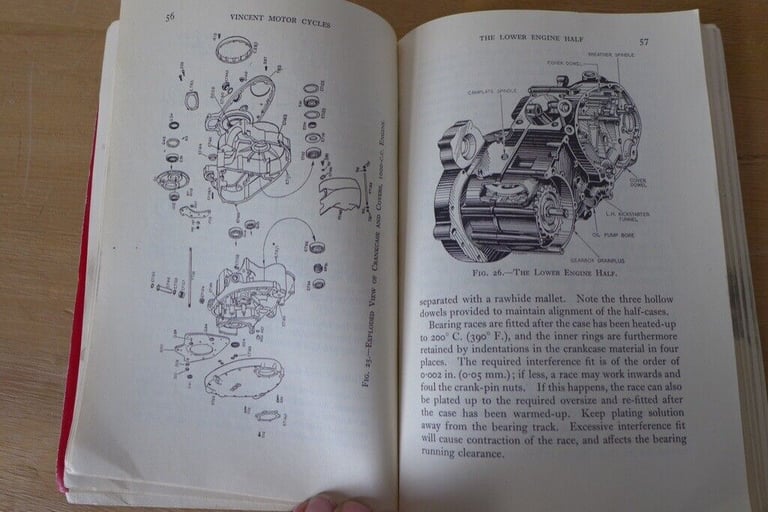 56
VINCENT MOTOR CYCLES
FIG. 25.—EXPLODED VIEW OF CRANKCASE AND COVERS, 1000-C.C. ENGINE.
THE LOWER ENGINE HALF
57
BREATHER SPINDLE
COVER DOWEL
CAMPLATE SPINDLE
COVER
DOWEL
L.H. KICKSTARTER
TUNNEL
OIL PUMP BORE
GEARBOX DRAINPLUG
FIG. 26.—THE LOWER ENGINE HALF.
separated with a rawhide mallet. Note the three hollow
dowels provided to maintain alignment of the half-cases.
Bearing races are fitted after the case has been heated-up
to 200° C. (390° F.), and the inner rings are furthermore
retained by indentations in the crankcase material in four
places. The required interference fit is of the order of
0·002 in. (0·05 mm.); if less, a race may work inwards and
foul the crank-pin nuts. If this happens, the race can also
be plated up to the required oversize and re-fitted after
the case has been warmed-up. Keep plating solution
away from the bearing track. Excessive interference fit
will cause contraction of the race, and affects the bearing
running clearance.